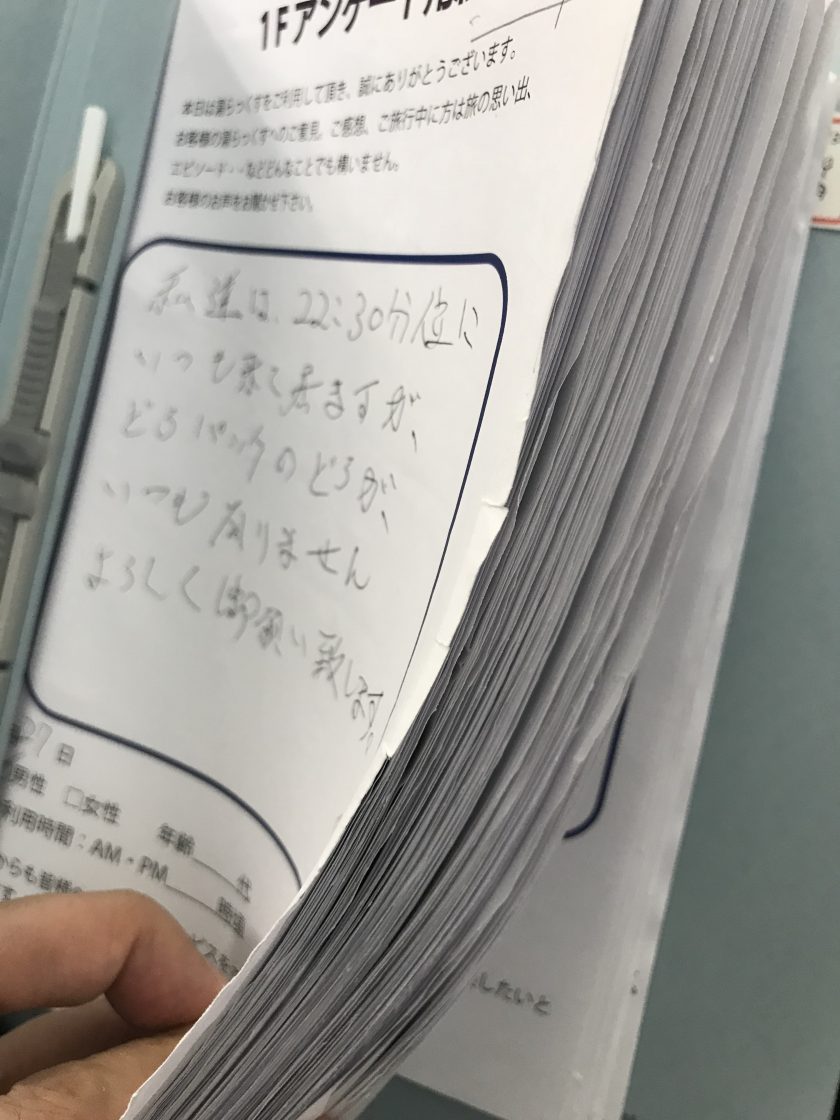 1Fアンケート用紙
本日は湯らっくすをご利用して頂き、誠にありがとうございます。
お客様の湯らっくすへのご意見、ご感想、ご旅行中に方は旅の思い出、
エピソード・・などどんなことでも構いません。
お客様のお声をお聞かせ下さい。
私達は、22:30分位に
いつも来て居ますが、
どろパックのどろが、
いつも有りません
よろしく御願い致します。
27日
男性 □女性 年齢 代
利用時間：AM・PM 時頃
したいと